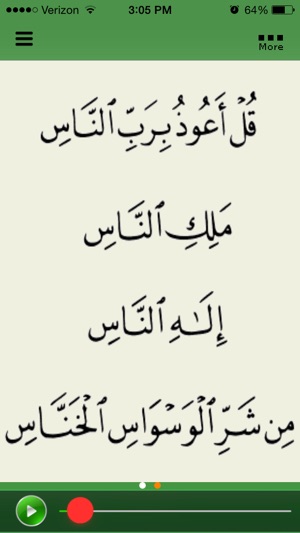 Verizon 3:05 PM 64%
More
قُلْ أَعُوذُ بِرَبِّ ٱلنَّاسِ
مَلِكِ ٱلنَّاسِ
إِلَـٰهِ ٱلنَّاسِ
مِن شَرِّ ٱلْوَسْوَاسِ ٱلْخَنَّاسِ